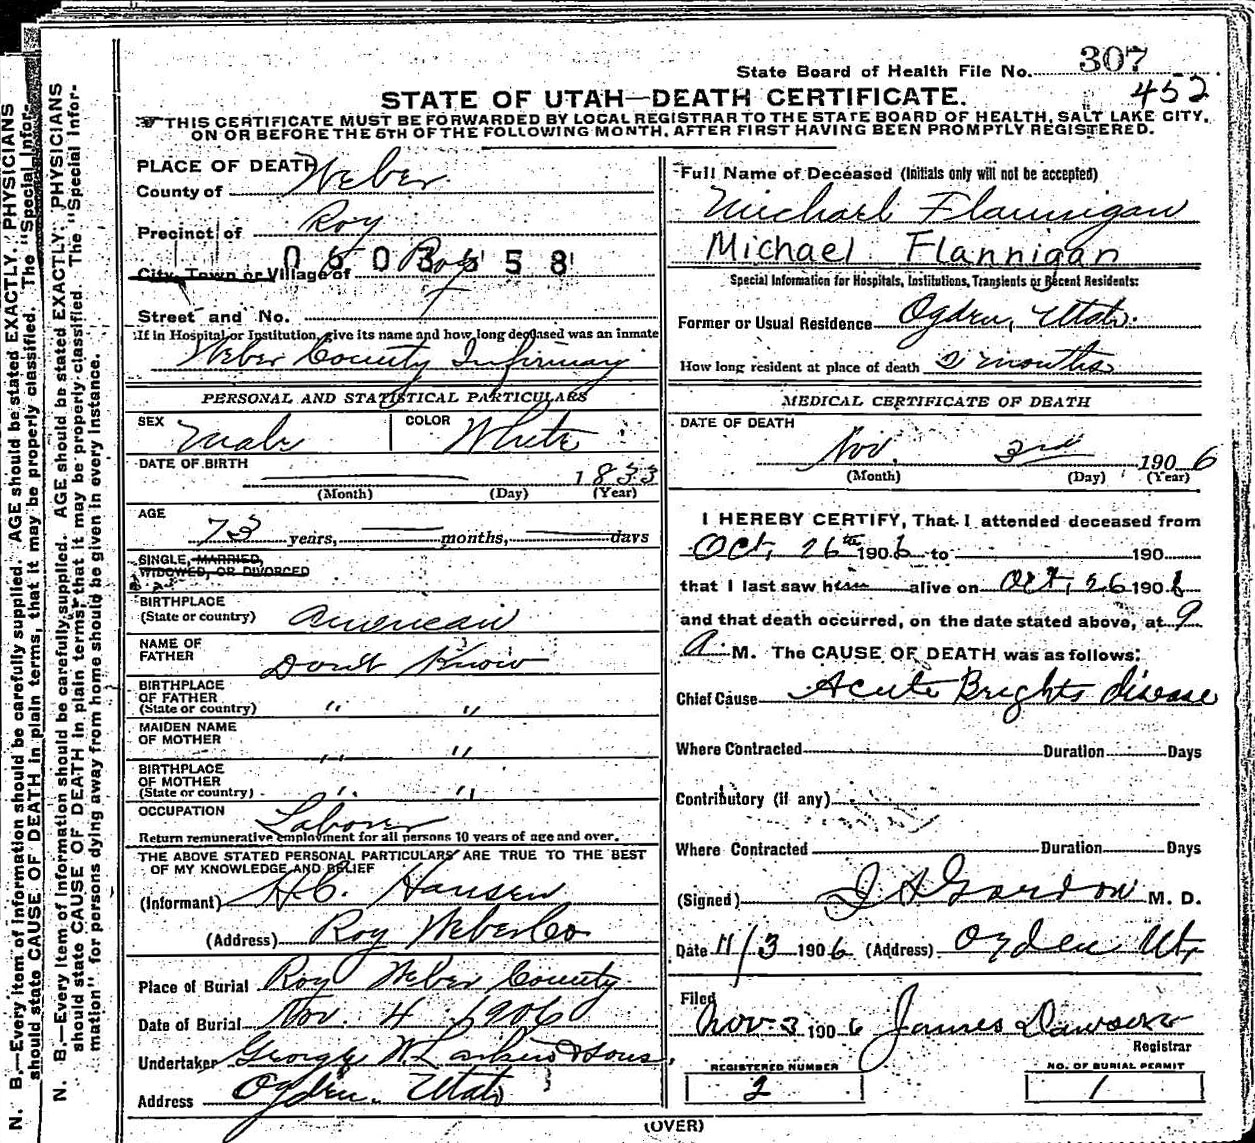 State Board of Health File No. 307
452
STATE OF UTAH—DEATH CERTIFICATE.
THIS CERTIFICATE MUST BE FORWARDED BY LOCAL REGISTRAR TO THE STATE BOARD OF HEALTH, SALT LAKE CITY,
ON OR BEFORE THE 5TH OF THE FOLLOWING MONTH, AFTER FIRST HAVING BEEN PROMPTLY REGISTERED.
N. B.—Every item of Information should be carefully supplied. AGE should be stated EXACTLY. PHYSICIANS
should state CAUSE OF DEATH in plain terms, that it may be properly classified. The "Special Infor-
N. B.—Every item of Information should be carefully supplied. AGE should be stated EXACTLY. PHYSICIANS
should state CAUSE OF DEATH in plain terms, that it may be properly classified. The "Special Infor-
mation" for persons dying away from home should be given in every instance.
PLACE OF DEATH
County of Weber
Precinct of Roy
0603558
City, Town or Village of Roy
Street and No.
If in Hospital or Institution, give its name and how long deceased was an inmate
Weber County Infirmary
PERSONAL AND STATISTICAL PARTICULARS
SEX Male COLOR White
DATE OF BIRTH 1833
(Month) (Day) (Year)
AGE
73 years, months, days
SINGLE, MARRIED,
WIDOWED, OR DIVORCED
BIRTHPLACE
(State or country) American
NAME OF
FATHER Don't Know
BIRTHPLACE
OF FATHER
(State or country) " "
MAIDEN NAME
OF MOTHER " "
BIRTHPLACE
OF MOTHER
(State or country) " "
OCCUPATION Laborer
Return remunerative employment for all persons 10 years of age and over.
THE ABOVE STATED PERSONAL PARTICULARS ARE TRUE TO THE BEST
OF MY KNOWLEDGE AND BELIEF
(Informant) H.C. Hansen
(Address) Roy Weber Co
Place of Burial Roy Weber County
Date of Burial Nov. 4 1906
Undertaker George W. Larkin & Sons,
Address Ogden, Utah
Full Name of Deceased (Initials only will not be accepted)
Michael Flannigan
Michael Flannigan
Special Information for Hospitals, Institutions, Transients or Recent Residents:
Former or Usual Residence Ogden, Utah.
How long resident at place of death 2 months
MEDICAL CERTIFICATE OF DEATH
DATE OF DEATH
Nov. 3rd 1906
(Month) (Day) (Year)
I HEREBY CERTIFY, That I attended deceased from
Oct, 26th 1906 to 190
that I last saw him alive on Oct, 26 1906
and that death occurred, on the date stated above, at 9
A. M. The CAUSE OF DEATH was as follows:
Chief Cause Acute Brights disease
Where Contracted Duration Days
Contributory (if any)
Where Contracted Duration Days
(Signed) J A Gordon M. D.
Date 11/3 1906 (Address) Ogden Ut
Filed
Nov 3 1906 James Dawson
Registrar
REGISTERED NUMBER
2
NO. OF BURIAL PERMIT
1
(OVER)